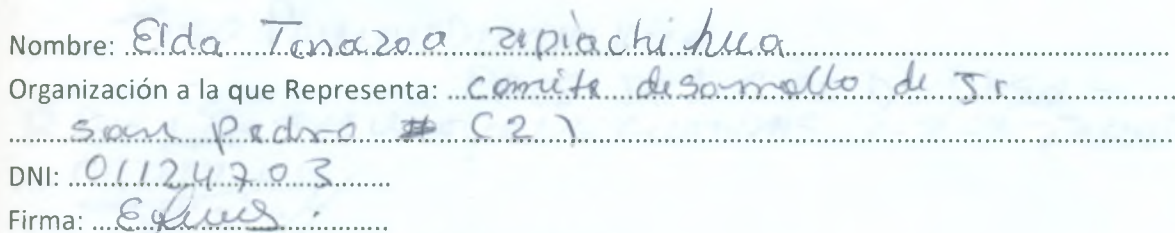 Nombre: Elda Tenazoa zipiachihua
Organización a la que Representa: comite desarrollo de Jr
san pedro # (2)
DNI: 01124703
Firma: